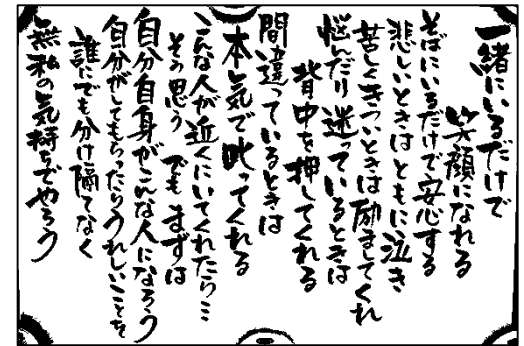 一緒にいるだけで
笑顔になれる
そばにいるだけで安心する
悲しいときはともに泣き
苦しくきついときは励ましてくれ
悩んだり迷っているときは
背中を押してくれる
間違っているときは
本気で叱ってくれる
こんな人が近くにいてくれたら…
その思う でもまずは
自分自身がこんな人になろう
自分がしてもらったりうれしいことを
誰にでも分け隔てなく
無私の気持ちでやろう